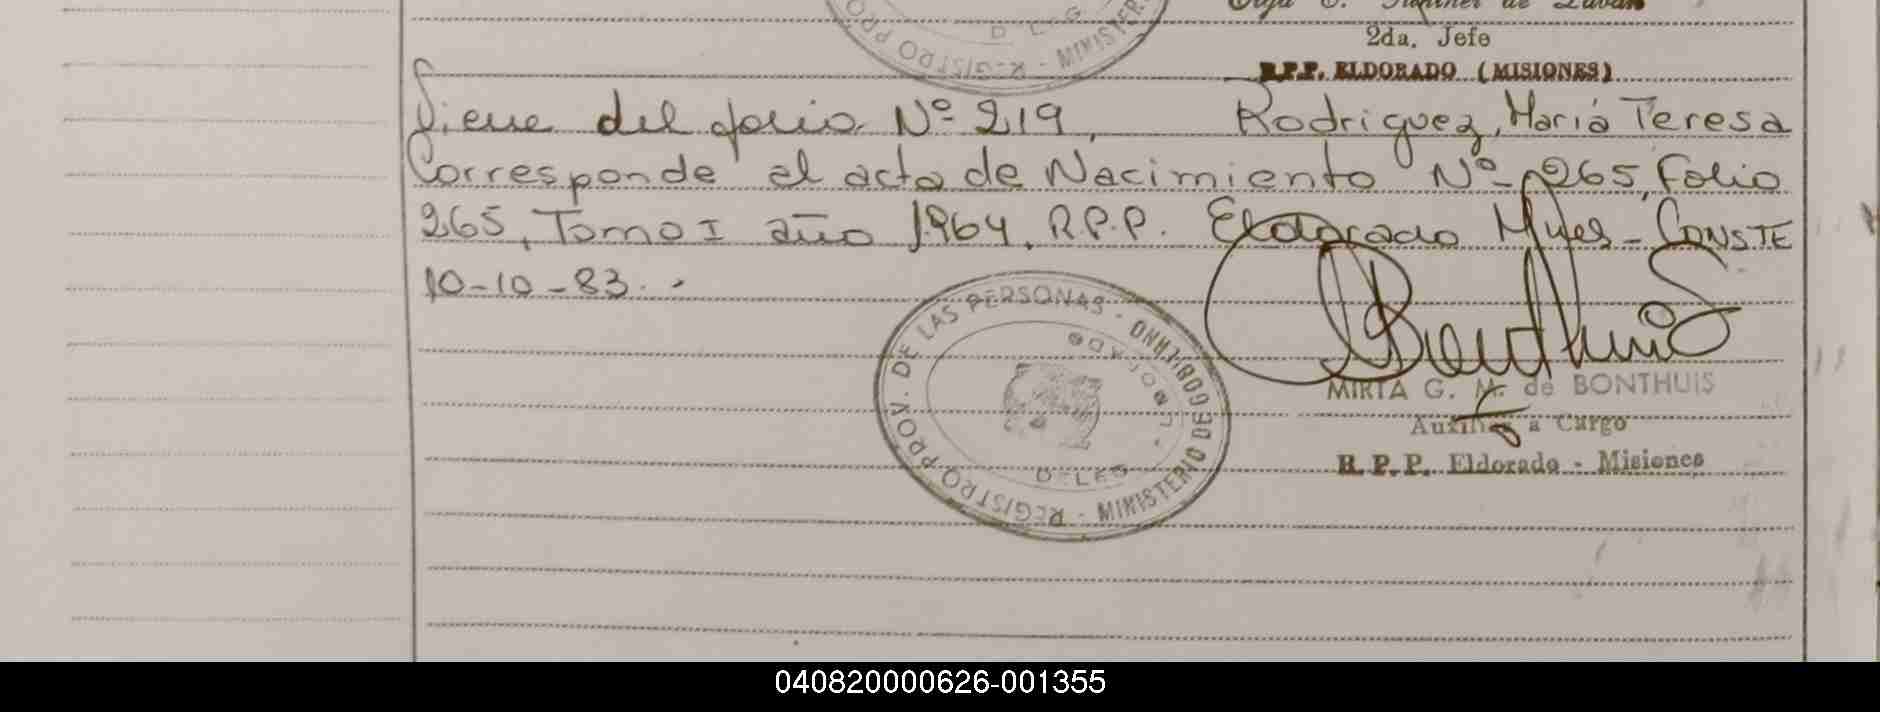 REGISTRO PRO
D LEG
MINISTER
2da. Jefe
R.P.P. ELDORADO (MISIONES)
Viene del folio Nº 219, Rodriguez, María Teresa
Corresponde al acta de Nacimiento Nº 265, Folio
265, Tomo I año 1964, R.P.P. Eldorado Mnes - CONSTE
10-10-83.-
REGISTRO PROV. DE LAS PERSONAS - MINISTERIO DE GOBIERNO
DELEG
MIRTA G. M. de BONTHUIS
Auxiliar a Cargo
R. P. P. Eldorado - Misiones
040820000626-001355